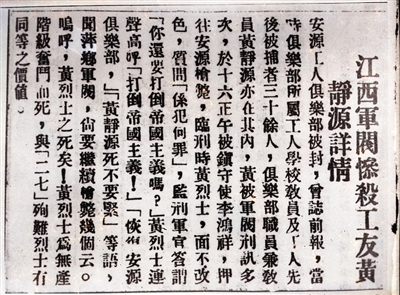 江西軍閥慘殺工友黃
靜源詳情
安源工人俱樂部被封，曾誌前報，當
時俱樂部所屬工人學校敎員及工人先
後被捕者三十餘人，俱樂部職員兼敎
員黃靜源亦在其內，黃被軍閥刑訊多
次，於十六正午被鎮守使李鴻祥，押
往安源槍斃，臨刑時黃烈士，面不改
色，質問「係犯何罪」，監刑軍官答謂
「你還要打倒帝國主義嗎？」黃烈士連
聲高呼「打倒帝國主義！」「恢復安源
俱樂部」，「黃靜源死不要緊」等語，
聞萍鄉軍閥，尙要繼續槍斃幾個云。
嗚呼，黃烈士之死矣！黃烈士爲無產
階級奮鬥而死，與「二七」殉難烈士有
同等之價値。